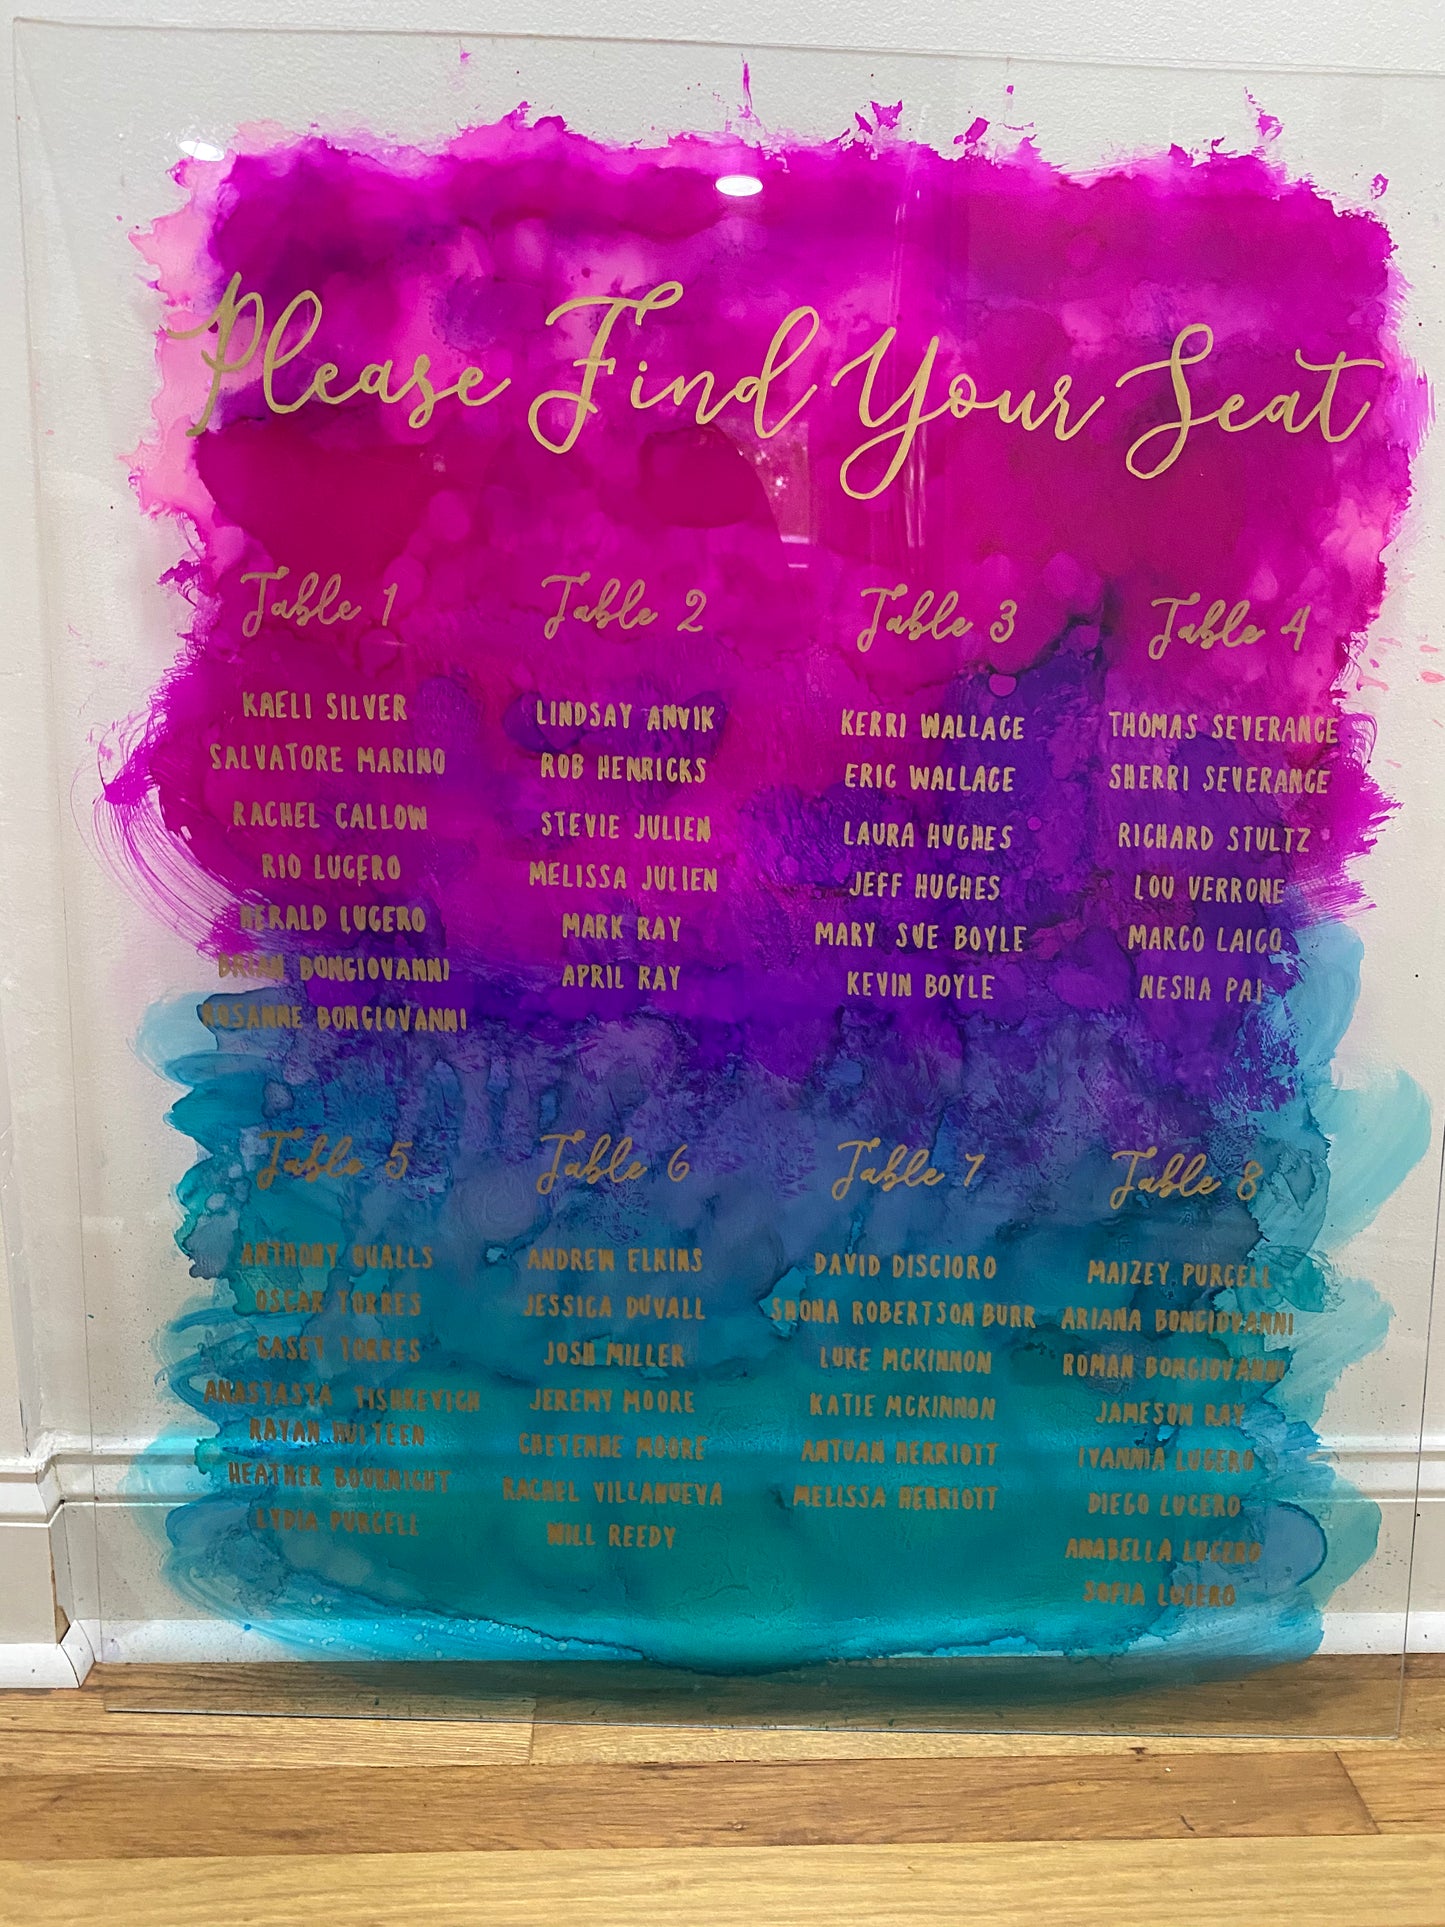 Please Find Your Seat
Table 1
KAELI SILVER
SALVATORE MARINO
RACHEL CALLOW
RIO LUCERO
HERALD LUCERO
BRIAN BONGIOVANNI
ROSANNE BONGIOVANNI
Table 2
LINDSAY ANVIK
ROB HENRICKS
STEVIE JULIEN
MELISSA JULIEN
MARK RAY
APRIL RAY
Table 3
KERRI WALLACE
ERIC WALLACE
LAURA HUGHES
JEFF HUGHES
MARY SUE BOYLE
KEVIN BOYLE
Table 4
THOMAS SEVERANCE
SHERRI SEVERANCE
RICHARD STULTZ
LOU VERRONE
MARCO LAICO
NESHA PAI
Table 5
ANTHONY QUALLS
OSCAR TORRES
CASEY TORRES
ANASTASIA TISHKEVICH
RAYAN HULTEEN
HEATHER BOUKNIGHT
LYDIA PURCELL
Table 6
ANDREW ELKINS
JESSICA DUVALL
JOSH MILLER
JEREMY MOORE
CHEYENNE MOORE
RACHEL VILLANUEVA
WILL REEDY
Table 7
DAVID DISCIORO
SHONA ROBERTSON BURR
LUKE MCKINNON
KATIE MCKINNON
ANTUAN HERRIOTT
MELISSA HERRIOTT
Table 8
MAIZEY PURCELL
ARIANA BONGIOVANNI
ROMAN BONGIOVANNI
JAMESON RAY
IVANNIA LUCERO
DIEGO LUCERO
ANABELLA LUCERO
SOFIA LUCERO